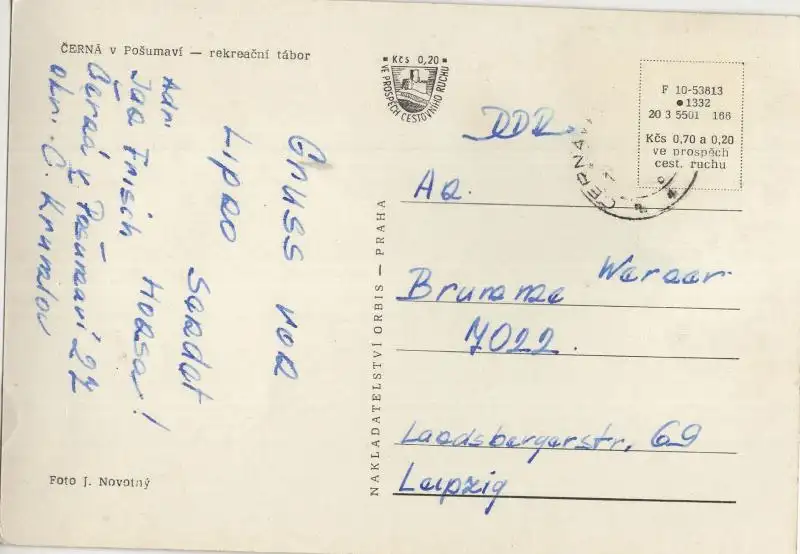 ČERNÁ v Pošumaví — rekreační tábor
Gruss von
Lipno
sendet
Honsa!
Adr.
Jan Frisch
Černá v Pošumaví 27
okr. Č. Krumlov
Foto J. Novotný
NAKLADATELSTVÍ ORBIS — PRAHA
Kčs 0,20
VE PROSPĚCH CESTOVNÍHO RUCHU
F 10-53813
1332
20 3 5501 166
Kčs 0,70 a 0,20
ve prospěch
cest. ruchu
ČERNÁ
DDR
An.
Werner
Brumme
7022.
Landsbergerstr. 69
Leipzig